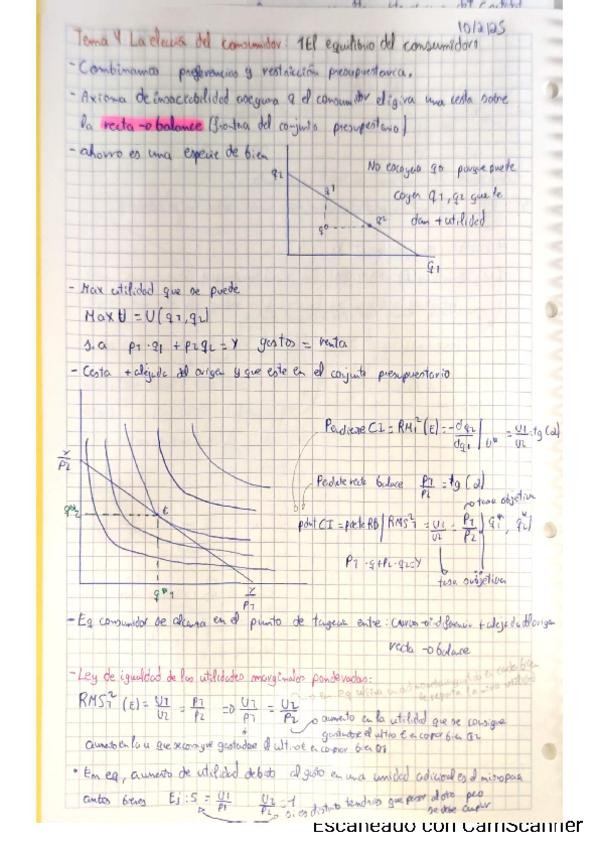 10/2/25
Tema 4 La elección del consumidor: 1El equilibrio del consumidor
- Combinamos preferencias y restricción presupuestaria.
- Axioma de insaciabilidad asegura q el consumidor eligira una cesta sobre
la recta -o balance (frontra del conjunto presupuestario)
- ahorro es una especie de bien
No escogere q0 porque puede
coger q1, q2 que le
dan + utilidad
q2
q1
q0
q2
q1
- Max utilidad que se puede
Max U = U(q1, q2)
s.a p1·q1 + p2q2 = Y gastos = renta
- Cesta + alejada del origen y que este en el conjunto presupuestario
Y/P2
q*2
E
q*1
Y/P1
Pendiente CI = RMS (E) = -dq2/dq1 | = U1/U2 = tg(2)
Pediente recta balance P1/P2 = tg(2)
tasa objetiva
pdnt CI = pdnte RB | RMS = U1/U2 = P1/P2 } q1*, q2*
P1·q1+P2·q2=Y
tasa subjetiva
- Eq consumidor se alcanza en el punto de tangencia entre: curva -o indiferencia + alejada del origen
recta -o balance
- Ley de igualdad de las utilidades marginales ponderadas:
RMS (E) = U1/U2 = P1/P2 => U1/P1 = U2/P2
aumento en la utilidad que se consigue
gastandose el ultimo € en copor bien Q2
aumento en la u que se consigue gastandose el ultimo € en copor bien Q1
• En eq, aumento de utilidad debido al gasto en una unidad adicional es el mismo para
ambos bienes Ej: 5 = U1/P1 U2/P2 = 1 si es distinto tendrias que
Escaneado con CamScanner